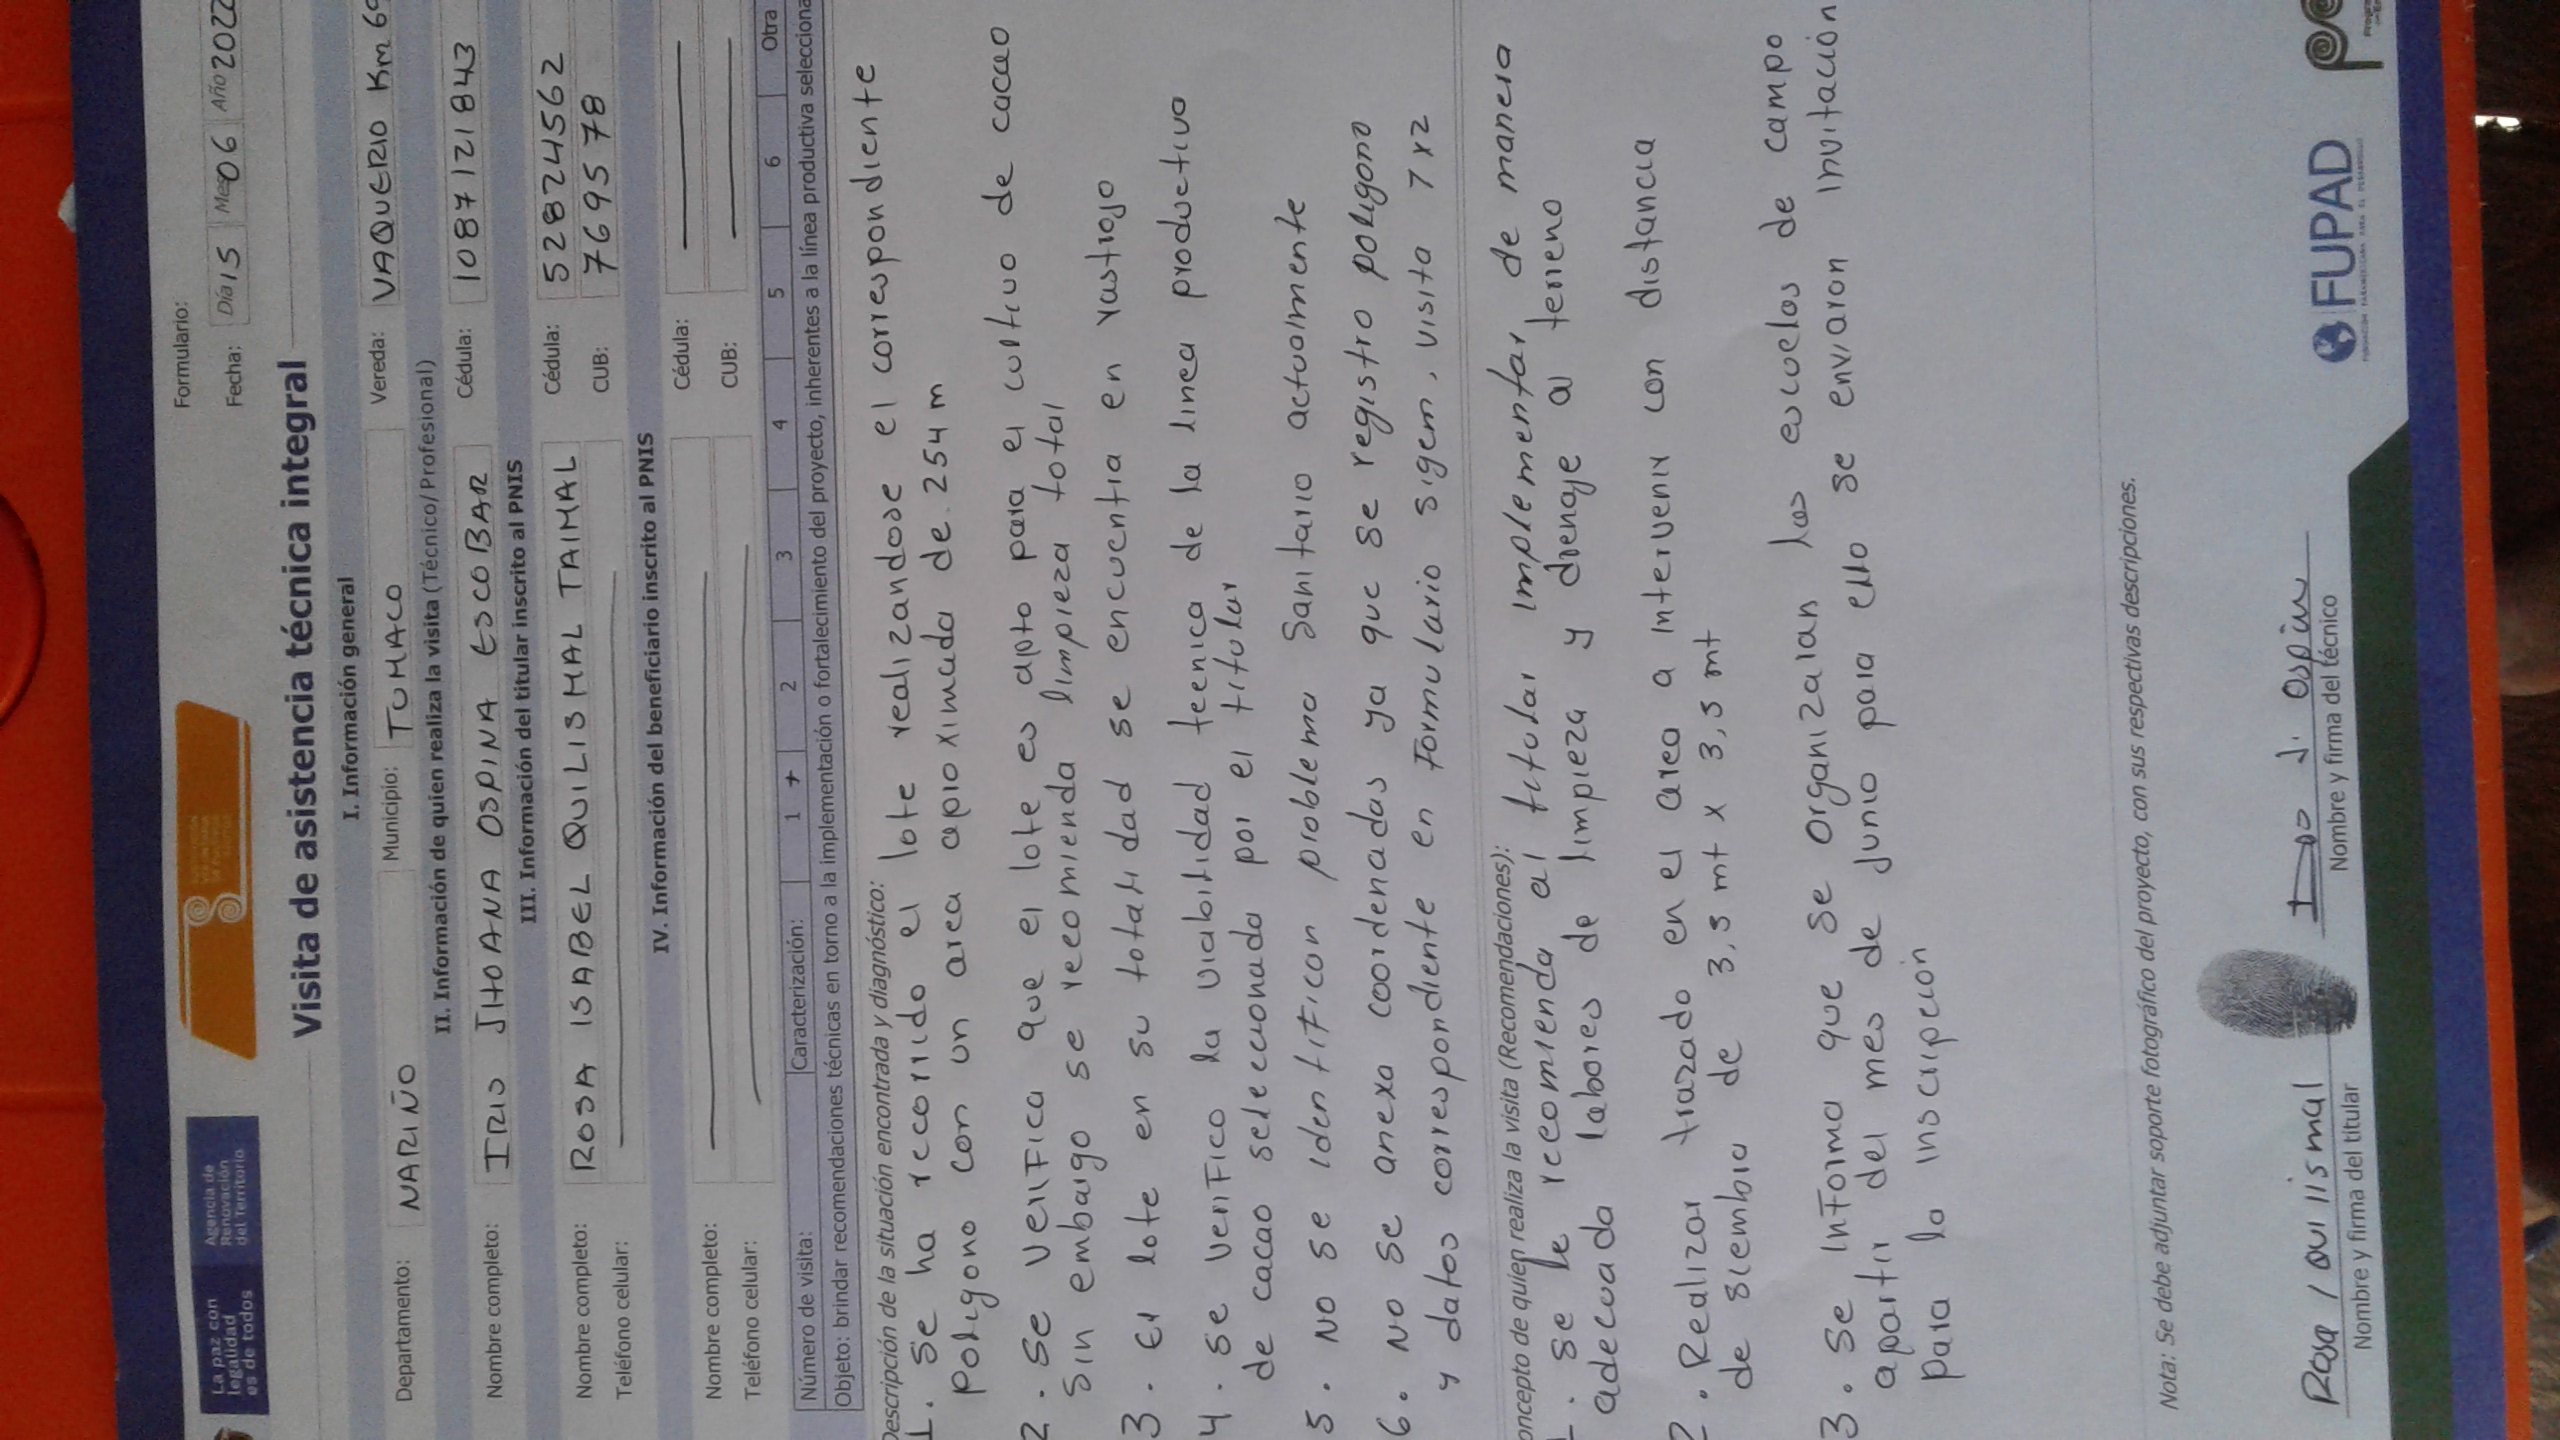 La paz con
legalidad
es de todos
Agencia de
Renovación
del Territorio
Formulario:
Fecha: Día 15 Mes 06 Año 2022
Visita de asistencia técnica integral
I. Información general
Departamento: NARIÑO Municipio: TUMACO Vereda: VAQUERIO Km 69
II. Información de quien realiza la visita (Técnico/Profesional)
Nombre completo: IRIS JHOANA OSPINA ESCOBAR Cédula: 1087121843
III. Información del titular inscrito al PNIS
Nombre completo: ROSA ISABEL QUILISMAL TAIMAL Cédula: 52824562
Teléfono celular: CUB: 7695578
IV. Información del beneficiario inscrito al PNIS
Nombre completo: Cédula:
Teléfono celular: CUB:
Número de visita: Caracterización: 1 + 2 3 4 5 6 Otra
Objeto: brindar recomendaciones técnicas en torno a la implementación o fortalecimiento del proyecto, inherentes a la línea productiva selecciona
Descripción de la situación encontrada y diagnóstico:
1. Se ha recorrido el lote realizandose el correspondiente
poligono con un area aproximada de 254 m
2. Se verifica que el lote es apto para el cultivo de cacao
sin embargo se recomienda limpieza total
3. El lote en su totalidad se encuentra en rastrojo
4. Se verifico la viabilidad tecnica de la linea productiva
de cacao seleccionada por el titular
5. No se identifican problema Sanitario actualmente
6. No se anexa coordenadas ya que se registro poligono
y datos correspondiente en Formulario sigem, visita 7x2
oncepto de quien realiza la visita (Recomendaciones):
1. Se le recomienda al titular implementar de manera
adecuada labores de limpieza y drenaje al terreno
2. Realizar trazado en el area a intervenir con distancia
de siembra de 3,5 mt x 3,5 mt
3. Se informa que se organizaran las escuelas de campo
apartir del mes de junio para ello se enviaron invitacion
para la inscripción
Nota: Se debe adjuntar soporte fotográfico del proyecto, con sus respectivas descripciones.
Rosa I Quilismal
Nombre y firma del titular
J. Ospina
Nombre y firma del técnico
FUPAD